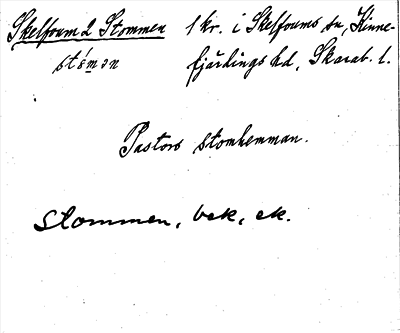 Skelfoum 2 Stommen 1 kr. i Skelfoums sn, Kinne-
stómən fjärdings hd, Skarab. l.
Pastors stomhemman.
Stommen, bek, ek.